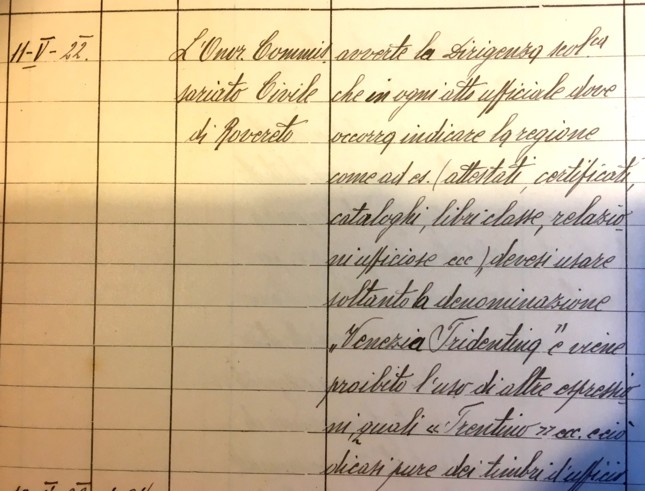 11-V-22.
L'Onor. Commis
sariato Civile
di Rovereto
avverte la Dirigenza scol.ca
che in ogni atto ufficiale dove
occorra indicare la regione
come ad es. (attestati, certificati,
cataloghi, libri classe, relazio
ni ufficiose ecc), devesi usare
soltanto la denominazione
„Venezia Tridentina" e viene
proibito l'uso di altre espressio
ni, quali «Trentino» ecc. e ciò
dicasi pure dei timbri d'ufficio